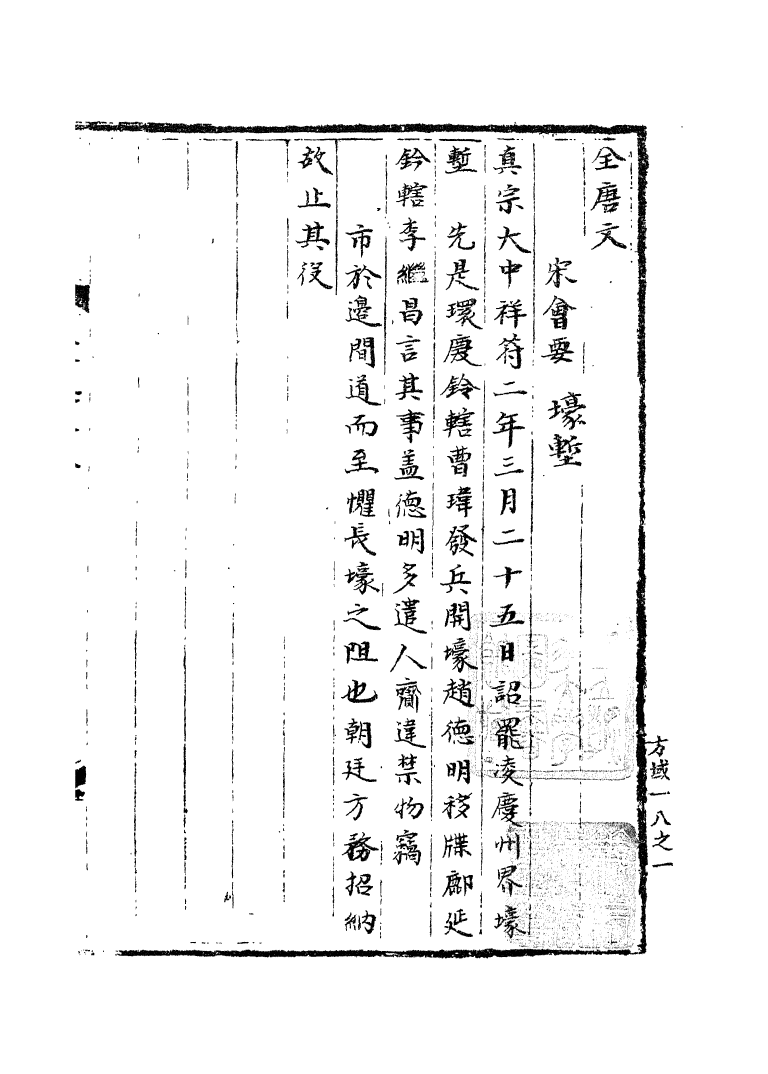 全唐文
宋會要 壕塹
真宗大中祥符二年三月二十五日詔罷淩慶州界壕
塹 先是環慶鈐轄曹瑋發兵開壕趙德明移牒鄜延
鈐轄李繼昌言其事盖德明多遣人齎違禁物竊
市於邊間道而至懼長壕之阻也朝廷方務招納
故止其役
方域一八之一